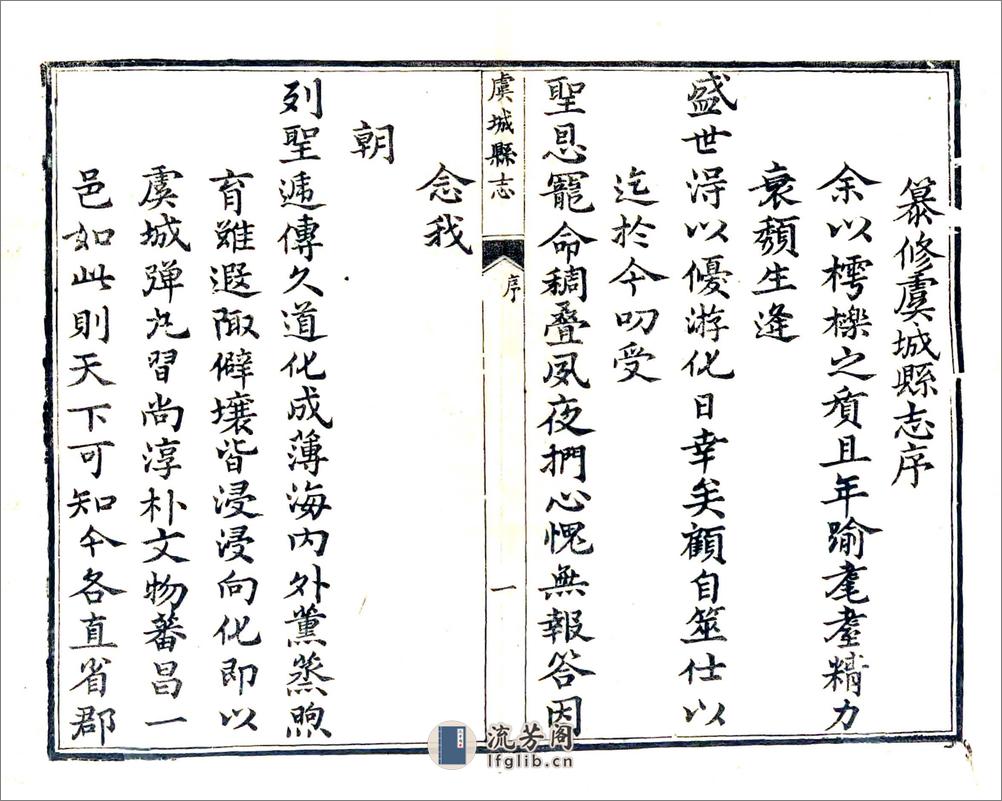 纂修虞城縣志序
余以樗櫟之質且年踰耄耋精力
衰頹生逢
盛世得以優游化日幸矣顧自筮仕以
迄於今叨受
聖恩寵命稠疊夙夜捫心愧無報答因
念我
虞城縣志
序
一
朝
列聖遞傳久道化成薄海内外薰蒸煦
育雖遐陬僻壤皆浸浸向化即以
虞城彈丸習尚淳朴文物蕃昌一
邑如此則天下可知今各直省郡
流芳阁
lfglib.cn